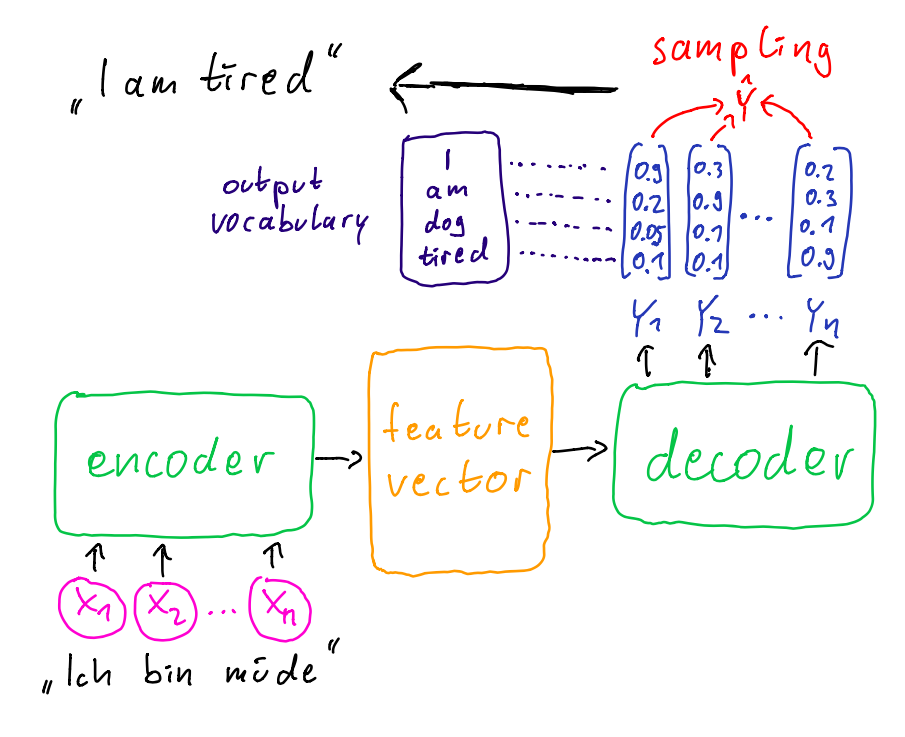 sampling
„I am tired“
Ŷ
output
vocabulary
I
am
dog
tired
0.9 0.3 0.2
0.2 0.9 ... 0.3
0.05 0.1 0.1
0.1 0.1 0.9
Y1 Y2 ... Yn
encoder
feature
vector
decoder
X1 X2 ... Xn
„Ich bin müde“